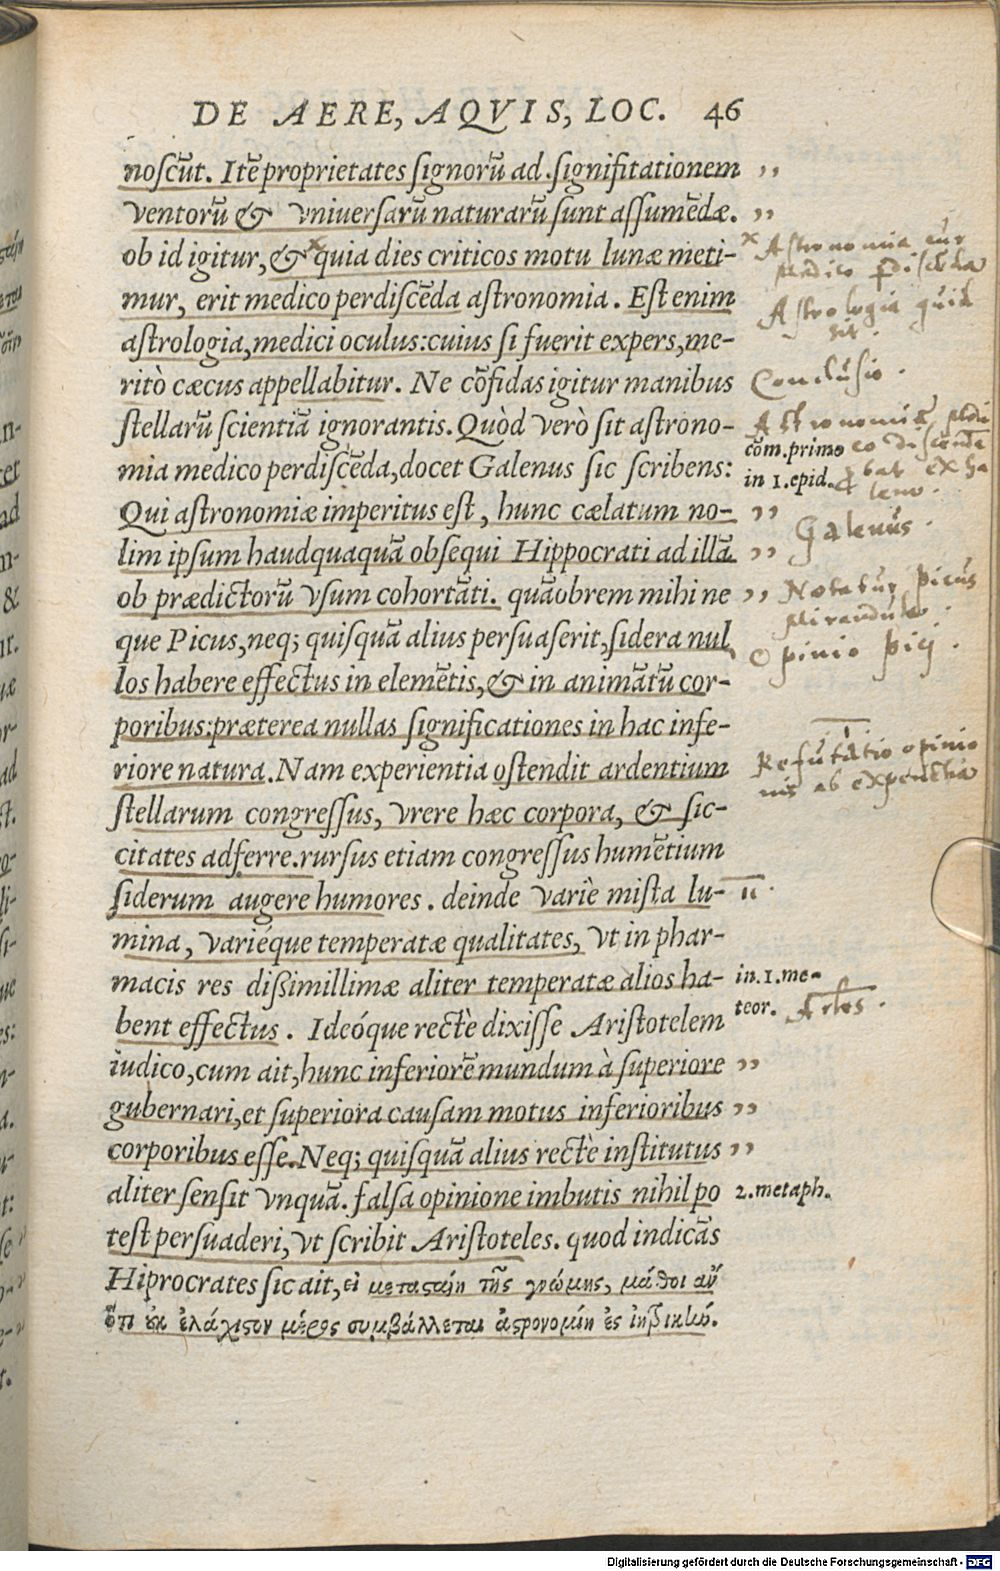 DE AERE, AQVIS, LOC. 46
noscūt. Itē proprietates signorū ad significationem ,,
ventorū & vniuersarū naturarū sunt assumēdæ. ,,
ob id igitur, & quia dies criticos motu lunæ meti-
mur, erit medico perdiscēda astronomia. Est enim
astrologia, medici oculus: cuius si fuerit expers, me-
ritò cæcus appellabitur. Ne cōfidas igitur manibus
stellarū scientiā ignorantis. Quòd verò sit astrono-
mia medico perdiscēda, docet Galenus sic scribens:
Qui astronomiæ imperitus est, hunc cælatum no- ,,
lim ipsum haudquaquā obsequi Hippocrati ad illā ,,
ob prædictorū vsum cohortāti. quāobrem mihi ne ,,
que Picus, neq; quisquā alius persuaserit, sidera nul
los habere effectus in elemētis, & in animātū cor-
poribus: præterea nullas significationes in hac infe-
riore natura. Nam experientia ostendit ardentium
stellarum congressus, vrere hæc corpora, & sic-
citates adferre. rursus etiam congressus humētium
siderum augere humores. deinde variè mista lu-
mina, variéque temperatæ qualitates, vt in phar-
macis res dißimillimæ aliter temperatæ alios ha-
bent effectus. Ideóque rectè dixisse Aristotelem
iudico, cum ait, hunc inferiorē mundum à superiore ,,
gubernari, et superiora causam motus inferioribus ,,
corporibus esse. Neq; quisquā alius rectè institutus ,,
aliter sensit vnquā. falsa opinione imbutis nihil po
test persuaderi, vt scribit Aristoteles. quod indicās
Hiprocrates sic ait, εἰ μεταστα̣ίη τῆς γνώμης, μάθοι ἂν
ὅτι οὐκ ἐλάχιστον μέρος συμβάλλεται ἀστρονομίη ἐς ἰητρικήν.
x Astronomia cur
medico perdiscenda
Astrologia quid
sit.
Conclusio.
Astronomiā medi
co discendā
com. primo
in 1. epid.
bat ex Ga
leno.
Galenus.
Notatur Picus
Mirandula.
Opinio Pici.
Refutatio opinio
nis ab experientia
in. 1. me-
teor.
Arles.
2. metaph.
Digitalisierung gefördert durch die Deutsche Forschungsgemeinschaft - DFG